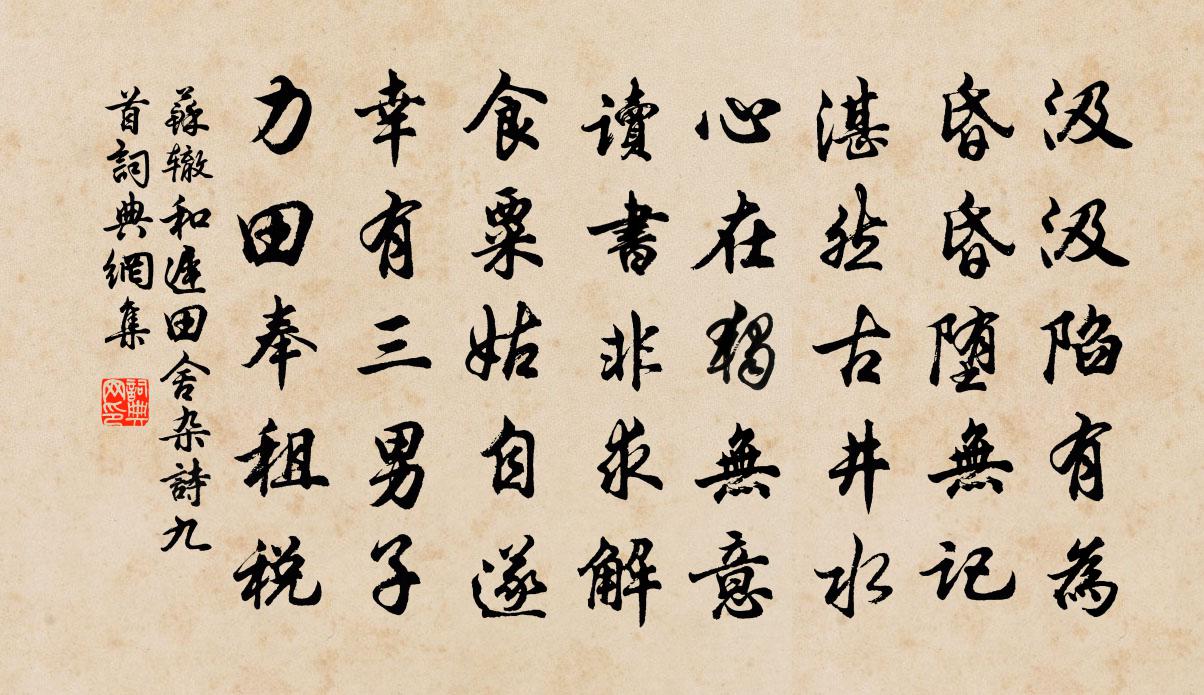 汲汲陷有為
昏昏堕無記
湛然古井水
心在獨無意
讀書非求解
食粟姑自遂
幸有三男子
力田奉租税
蘇辙和遲田舍杂詩九
首詞典網集
詞典网印